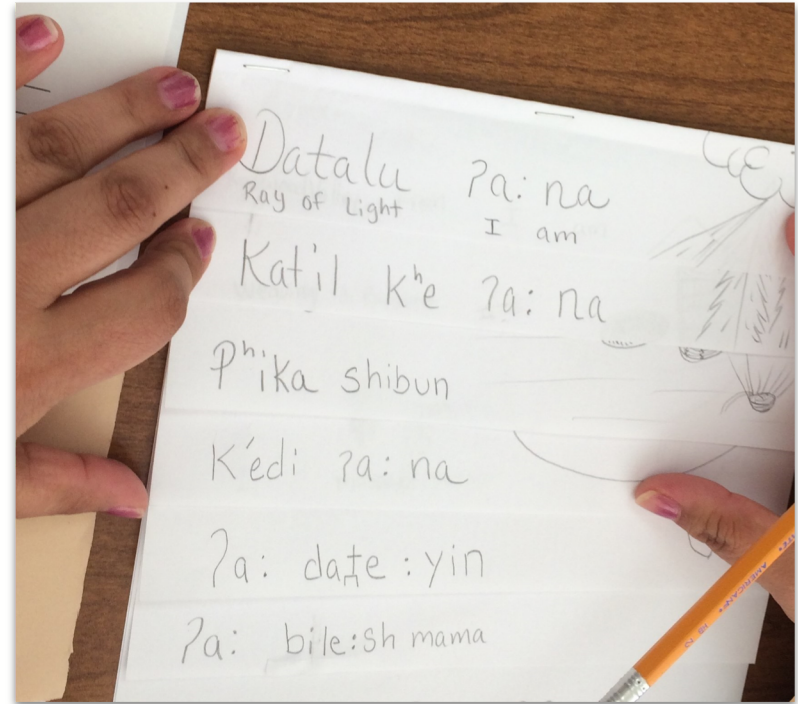 Datalu ʔa: na
Ray of Light I am
Kat'il kʰe ʔa: na
Pʰ'ika shibun
K'edi ʔa: na
ʔa: dat̪e:yin
ʔa: bile:sh mama
AMERICAN